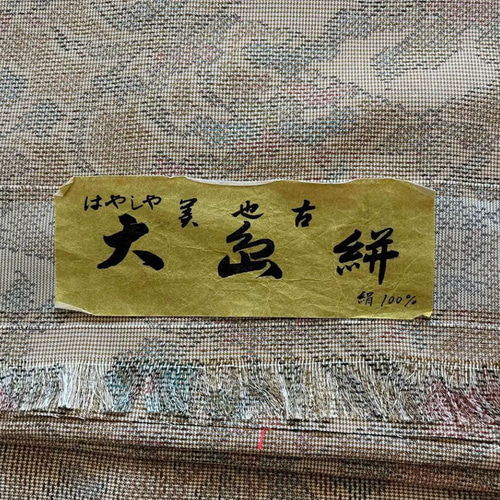 はやしや
美也古
大島絣
絹100%